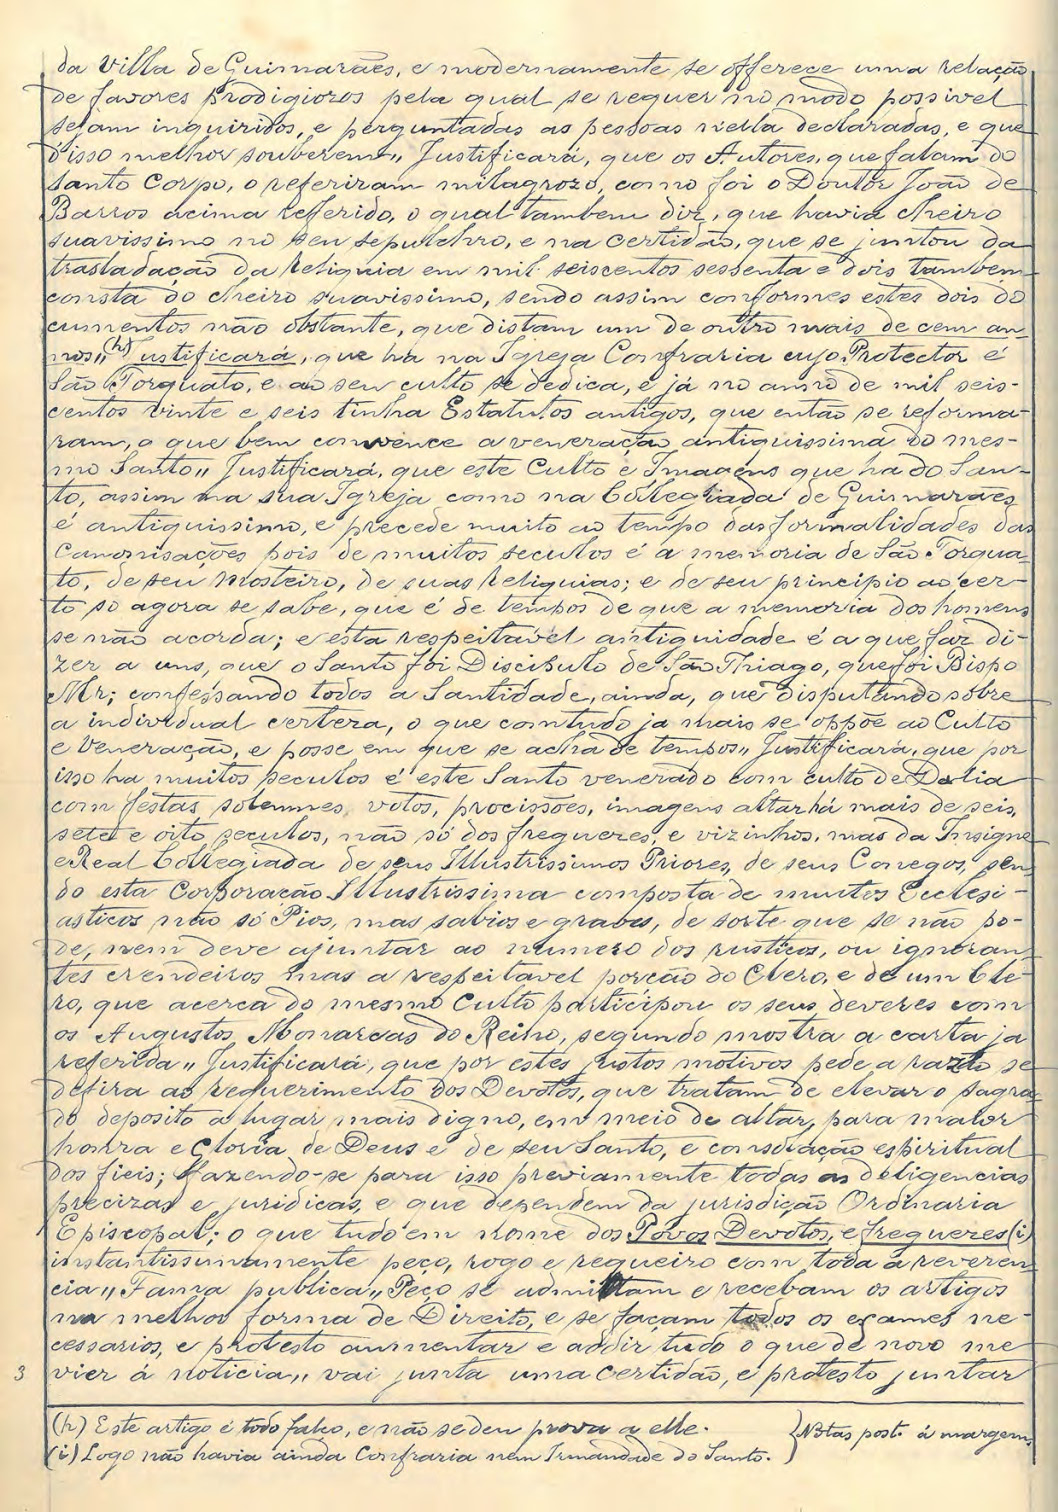 da Villa de Guimarães, e modernamente se offerece uma relação
de favores prodigiozos pela qual se requer no modo possivel
sejam inquiridos, e perguntadas as pessoas nella declaradas, e que
d'isso melhor souberem,, Justificará, que os Autores, que falam do
Santo Corpo, o referiram milagrozo, como foi o Doutor João de
Barros acima referido, o qual tambem diz, que havia cheiro
suavissimo no seu sepulchro, e na certidão, que se juntou da
trasladação da Reliquia em mil seiscentos sessenta e dois tambem
consta do cheiro suavissimo, sendo assim conformes estes dois do
cumentos não obstante, que distam um de outro mais de cem an-
nos,, (h) Justificará, que ha na Igreja Confraria cujo Protector é
São Torquato, e ao seu culto se dedica, e já no anno de mil seis-
centos vinte e seis tinha Estatutos antigos, que então se reforma-
ram, o que bem convence a veneração antiquissima do mes-
mo Santo,, Justificará, que este Culto e Imagens que ha do San-
to, assim na sua Igreja como na Collegiada de Guimarães
é antiquissimo, e precede muito ao tempo das formalidades das
Canonisações pois de muitos seculos é a memoria de São Torqua-
to, de seu Mosteiro, de suas Reliquias; e de seu principio ao cer-
to so agora se sabe, que é de tempos de que a memoria dos homens
se não acorda; e esta respeitavel antiguidade é a que faz di-
zer a uns, que o Santo foi Discibulo de São Thiago, que foi Bispo
Mr; confessando todos a Santidade, ainda, que disputando sobre
a individual certeza, o que comtudo ja mais se oppõe ao Culto
e Veneração, e posse em que se acha de tempos,, Justificará, que por
isso ha muitos seculos é este Santo venerado com culto de Dulia
com festas solennes, votos, procissões, imagens altar há mais de seis,
sete e oito seculos, não só dos freguezes, e vizinhos, mas da Insigne
e Real Collegiada de seus Illustrissimos Priores, de seus Conegos, sen-
do esta Corporação Illustrissima composta de muitos Ecclesi-
asticos não só Pios, mas sabios e graves, de sorte que se não po-
de, nem deve ajuntar ao numero dos rusticos, ou ignoran-
tes crendeiros mas a respeitavel porção do Clero, e de um Cle-
ro, que acerca do mesmo Culto participou os seus deveres com
os Augustos Monarcas do Reino, segundo mostra a carta ja
referida,, Justificará, que por estes justos motivos pede a razão se
defira ao requerimento dos Devotos, que tratam de elevar o sagra
do deposito a lugar mais digno, em meio de altar, para maior
honra e Gloria de Deus e de seu Santo, e consolação espiritual
dos fieis; fazendo-se para isso previamente todas as deligencias
precizas e juridicas, e que dependem da jurisdição Ordinaria
Episcopal; o que tudo em nome dos Povos Devotos, e freguezes (i)
instantissimamente peço, rogo e requeiro com toda a reveren
cia,, Fama publica,, Peço se admittam e recebam os artigos
na melhor forma de Direito, e se façam todos os exames ne-
cessarios, e protesto aumentar e addir tudo o que de novo me
3 vier á noticia,, vai junta uma certidão, e protesto juntar
(h) Este artigo é todo falso, e não se deu prova a elle.
(i) Logo não havia ainda Confraria nem Irmandade do Santo.
} Notas post. á margem.